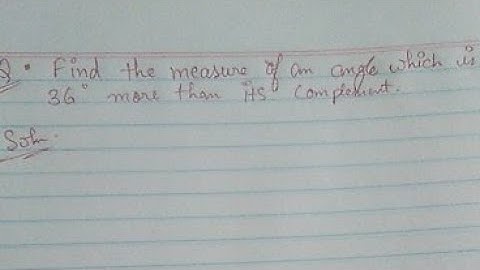 Q. Find the measure of an angle which is
36° more than its complement.
Soln.